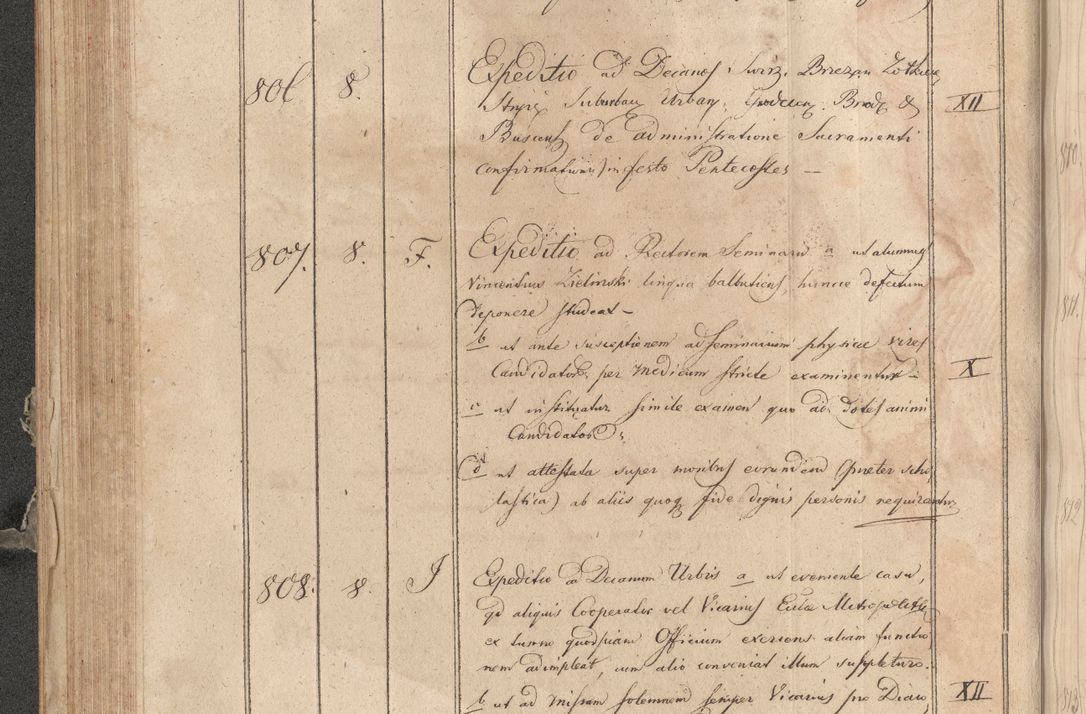 806 8. Expeditio ad Decanos Swirz. Brzezan Zolkiew
Stryi Suburban Urban, Grodecen. Brod. & XII
Buscens de administratione Sacramenti
confirmationis in festo Pentecostes —
807. 8. F. Expeditio ad Rectorem Seminarii a ut alumnus
Vincentius Zielinski lingua balbutiens, huncce defectum
deponere studeat —
b ut ante susceptionem ad Seminarium physicae vires
Candidator. per Medicum stricte examinentur — X
c ut instituatur simile examen quo ad dotes animi
Candidator
d ut attestata super moribus eorundem (praeter scho
lastica) ab aliis quoq fide dignis personis requirantur
808. 8. J Expeditio ad Decanum Urbis a ut eveniente casu,
qd aliquis Cooperator vel Vicarius Eccla Metropolit
ex turno quodpiam Officium exercens aliam functio
nem adimpleat, cum alio conveniat illum suppleturo.
b ut ad Missam solemnem semper Vicarius pro Diaco, XII
810.
811.
812
813